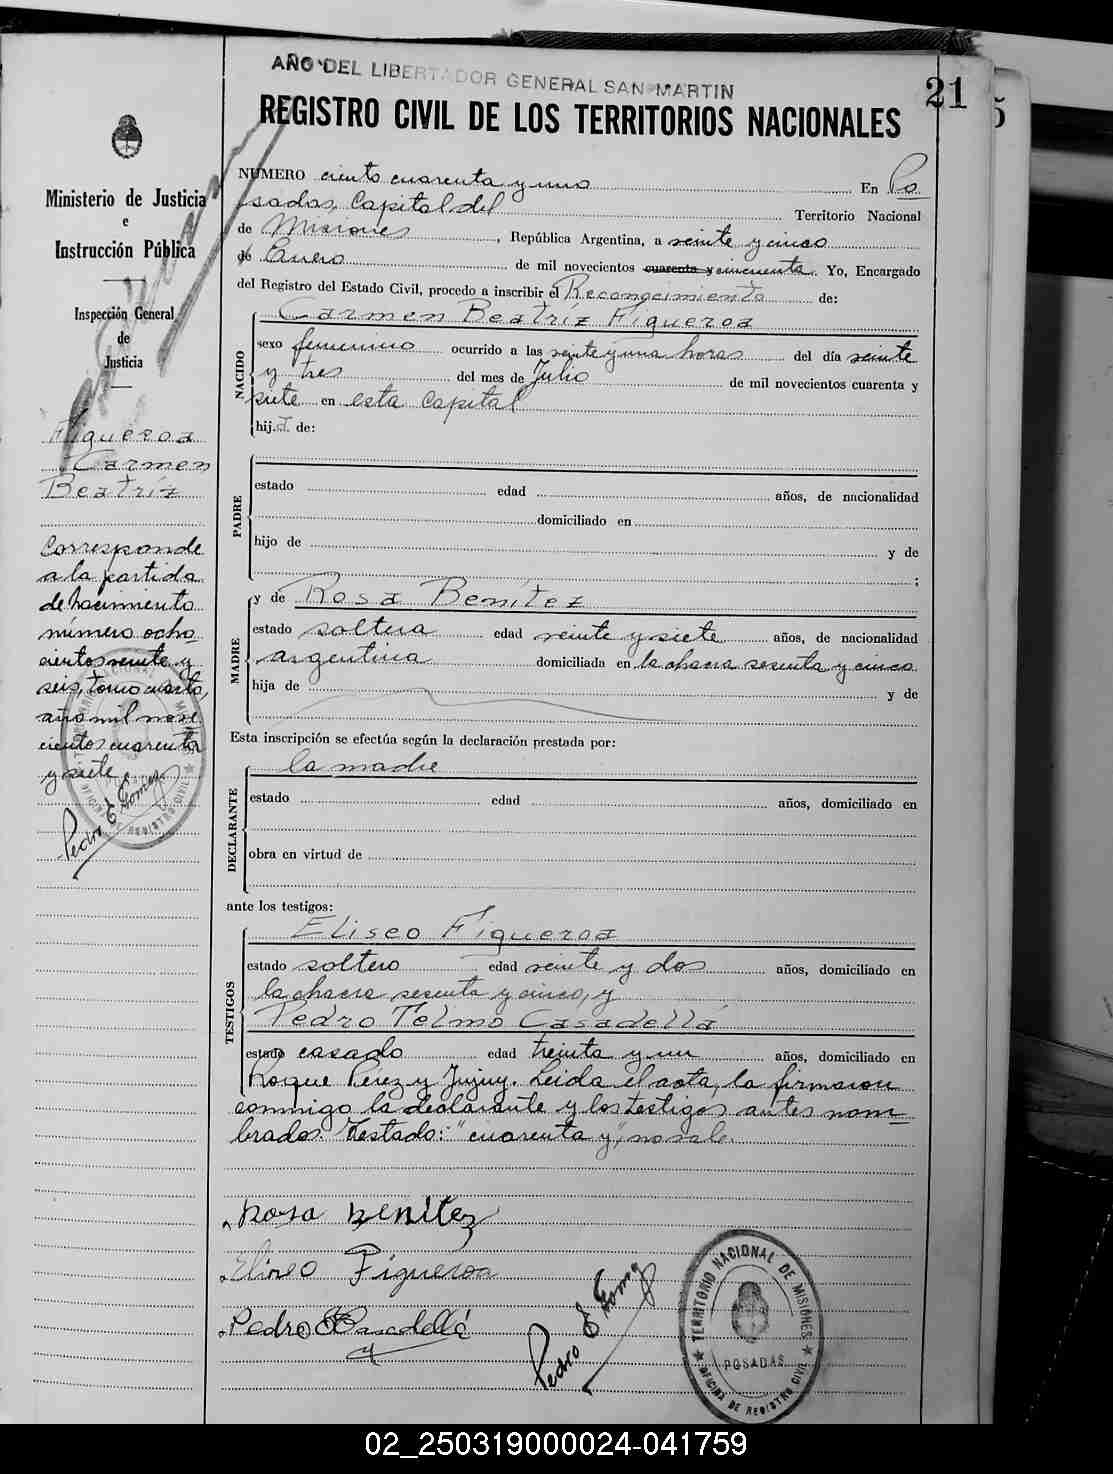 AÑO DEL LIBERTADOR GENERAL SAN MARTIN
21
REGISTRO CIVIL DE LOS TERRITORIOS NACIONALES
Ministerio de Justicia
e
Instrucción Pública
Inspección General
de
Justicia
Figueroa
Carmen
Beatríz
Corresponde
a la partida
de nacimiento
número ocho
cientos veinte y
seis, tomo cuarto,
año mil nove
cientos cuarenta
y siete
Pedro E Gomez
NUMERO ciento cuarenta y uno En Po
sadas, Capital del Territorio Nacional
de Misiones, República Argentina, a veinte y cinco
de Enero de mil novecientos cuarenta y cincuenta. Yo, Encargado
del Registro del Estado Civil, procedo a inscribir el Reconocimiento de:
Carmen Beatríz Figueroa
NACIDO
sexo femenino ocurrido a las veinte y una horas del día veinte
y tres del mes de Julio de mil novecientos cuarenta y
siete en esta Capital
hij.a de:
PADRE
estado edad años, de nacionalidad
domiciliado en
hijo de y de
;
MADRE
y de Rosa Benítez
estado soltera edad veinte y siete años, de nacionalidad
argentina domiciliada en la chacra sesenta y cinco
hija de y de
Esta inscripción se efectúa según la declaración prestada por:
DECLARANTE
la madre
estado edad años, domiciliado en
obra en virtud de
ante los testigos:
TESTIGOS
Eliseo Figueroa
estado soltero edad veinte y dos años, domiciliado en
la chacra sesenta y cinco, y
Pedro Telmo Casadellá
estado casado edad treinta y un años, domiciliado en
Roque Pérez y Jujuy. Leída el acta, la firmaron
conmigo la declarante y los testigos antes nom
brados. Testado: "cuarenta y", no vale.
Rosa Benitez
Eliseo Figueroa
Pedro Casadellá
Pedro E Gomez
TERRITORIO NACIONAL DE MISIONES
POSADAS
OFICINA DE REGISTRO CIVIL
02_250319000024-041759